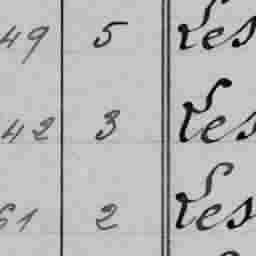 49 5 Les
42 3 Les
61 2 Les